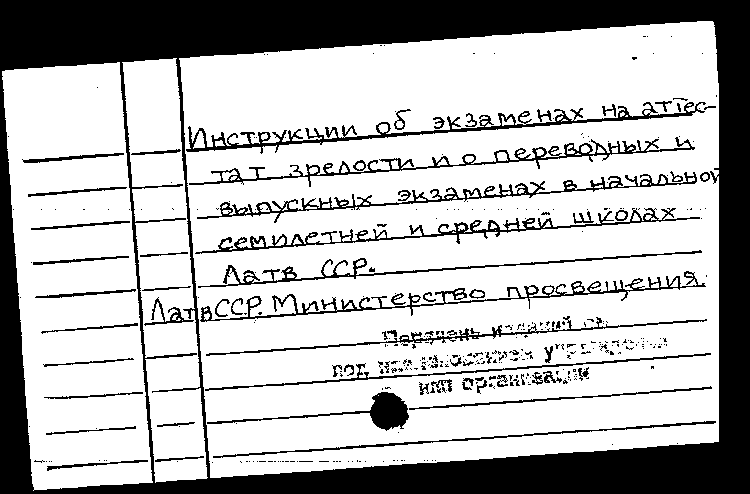 Инструкции об экзаменах на аттес-
тат зрелости и о переводных и
выпускных экзаменах в начальной
семилетней и средней школах
Латв ССР.
ЛатвССР. Министерство просвещения.
Перечень изданий см.
под наименованием учреждения
или организации